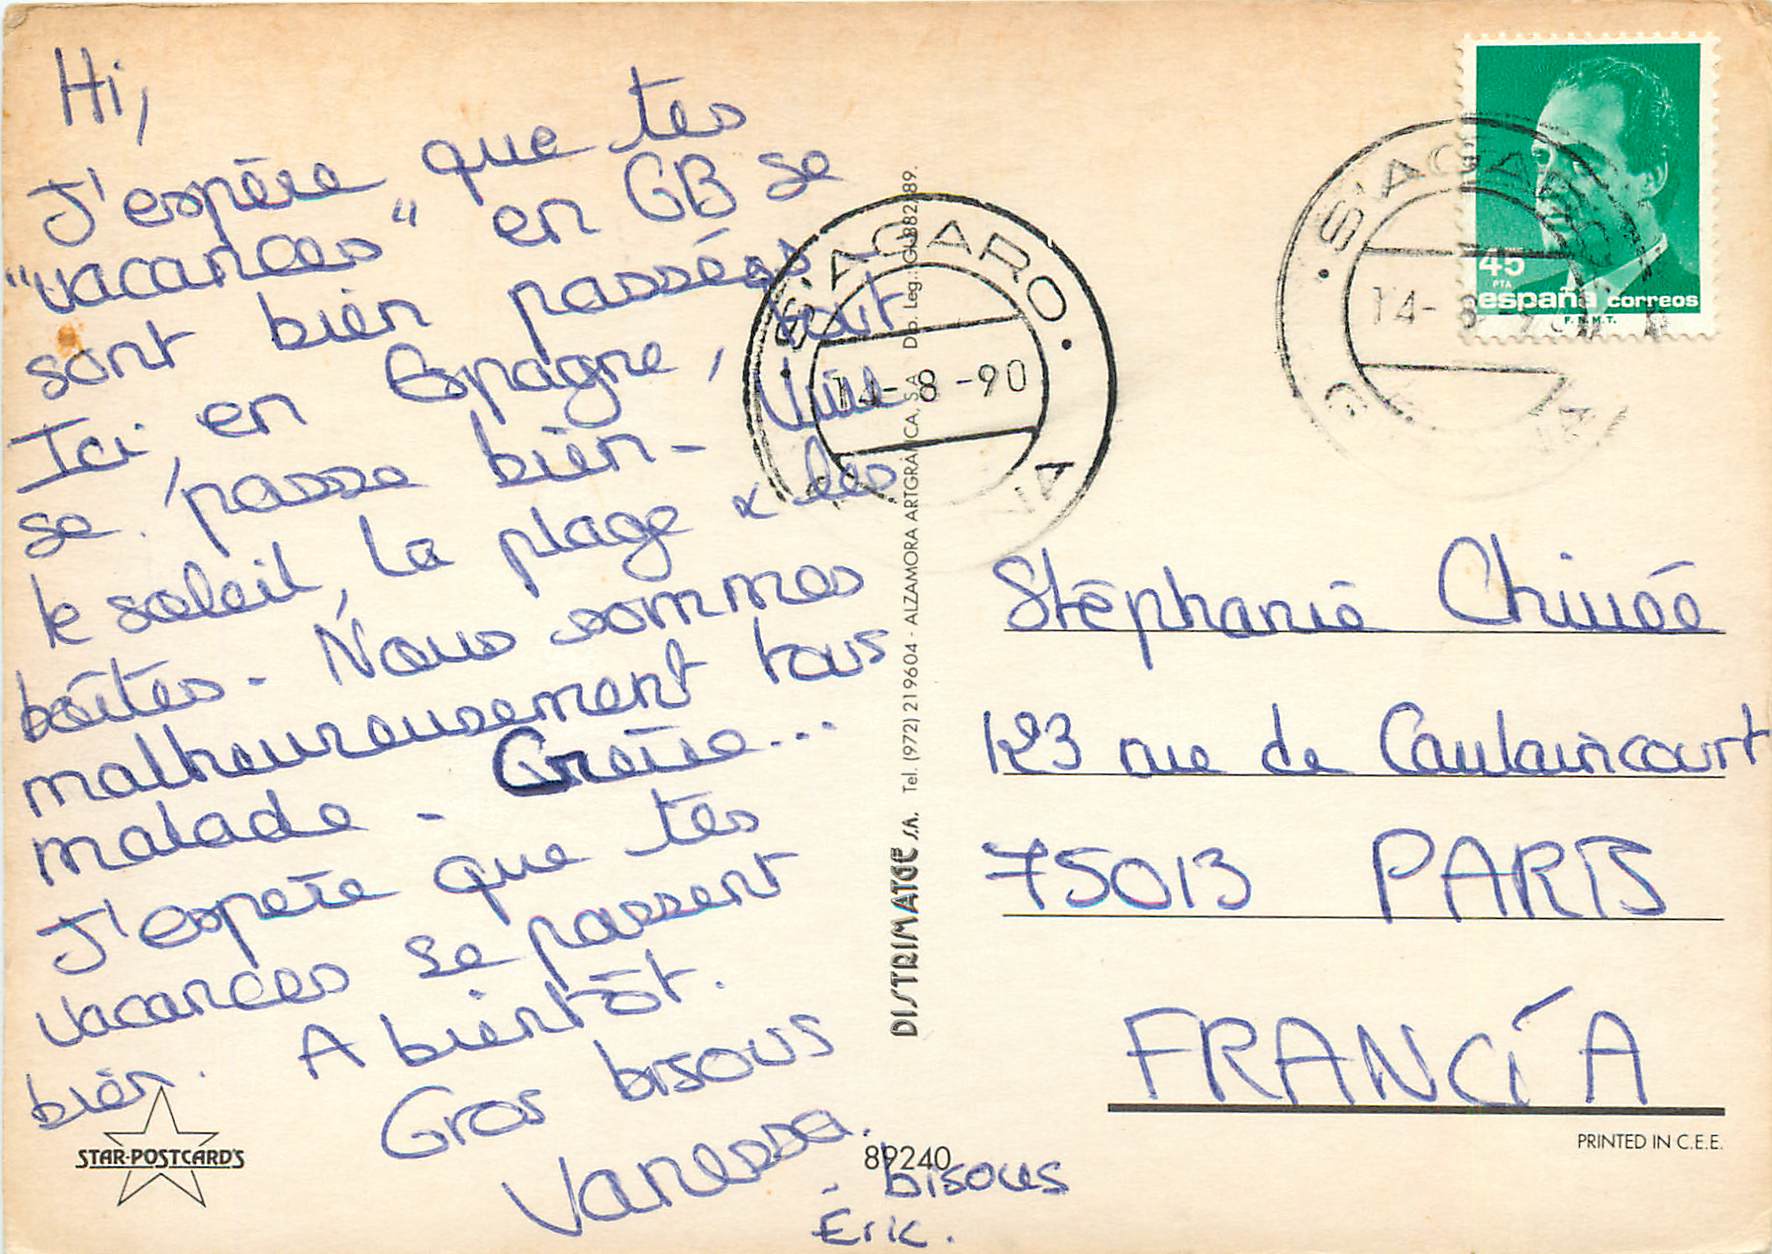 Hi,
J'espère que tes
"vacances" en GB se
sont bien passées.
Ici, en Espagne, tout
se passe bien - Vive
le soleil, la plage & les
boîtes. Nous sommes
malheureusement tous
malade - Grève...
J'espère que tes
vacances se passent
bien. A bientôt.
Gros bisous
Vanessa.
- bisous
Éric.
STAR-POSTCARD'S
89240
DISTRIMATGE S.A. Tel. (972) 219604 - ALZAMORA ARTGRÀFICA, S.A. Dip. Leg.: GI-882-89.
S'AGARO
14-8-90
S'AGARO
14-8-90
45
PTA
españa correos
F.N.M.T.
Stéphanie
123 rue de Caulaincourt
75013 PARIS
FRANCÍA
PRINTED IN C.E.E.